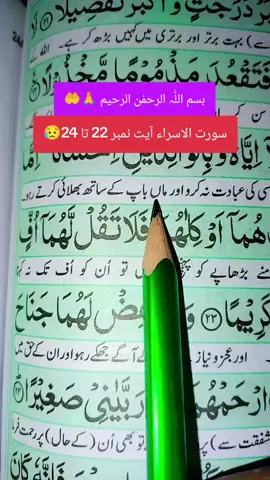 دَرَجٰتٍ وَّاَكْبَرُ تَفْضِيْلًا
سے) بہت برتر اور برتری میں کہیں بڑھ کر ہے۔
فَتَقْعُدَ مَذْمُوْمًا مَّخْذُوْلًا
بسم اللّٰہ الرحمٰن الرحیم 🙏 🤲
سورت الاسراء آیت نمبر 22 تا 24😥
سی کی عبادت نہ کرو اور ماں باپ کے ساتھ بھلائی کرتے رہو
هُمَآ اَوْ كِلٰهُمَا فَلَا تَقُلْ لَّهُمَآ اُفٍّ
بڑھاپے کو تو اُن کو اُف تک نہ
كَرِيْمًا ۝٢٣ لَهُمَا جَنَاحَ
اور عجز و نیاز آگے جھکے رہو اور ان کے حق میں
ارْحَمْهُمَا رَبَّيٰنِيْ صَغِيْرًا
شفقت سے) تو بھی اُن (کے حال) پر رحمت فرما